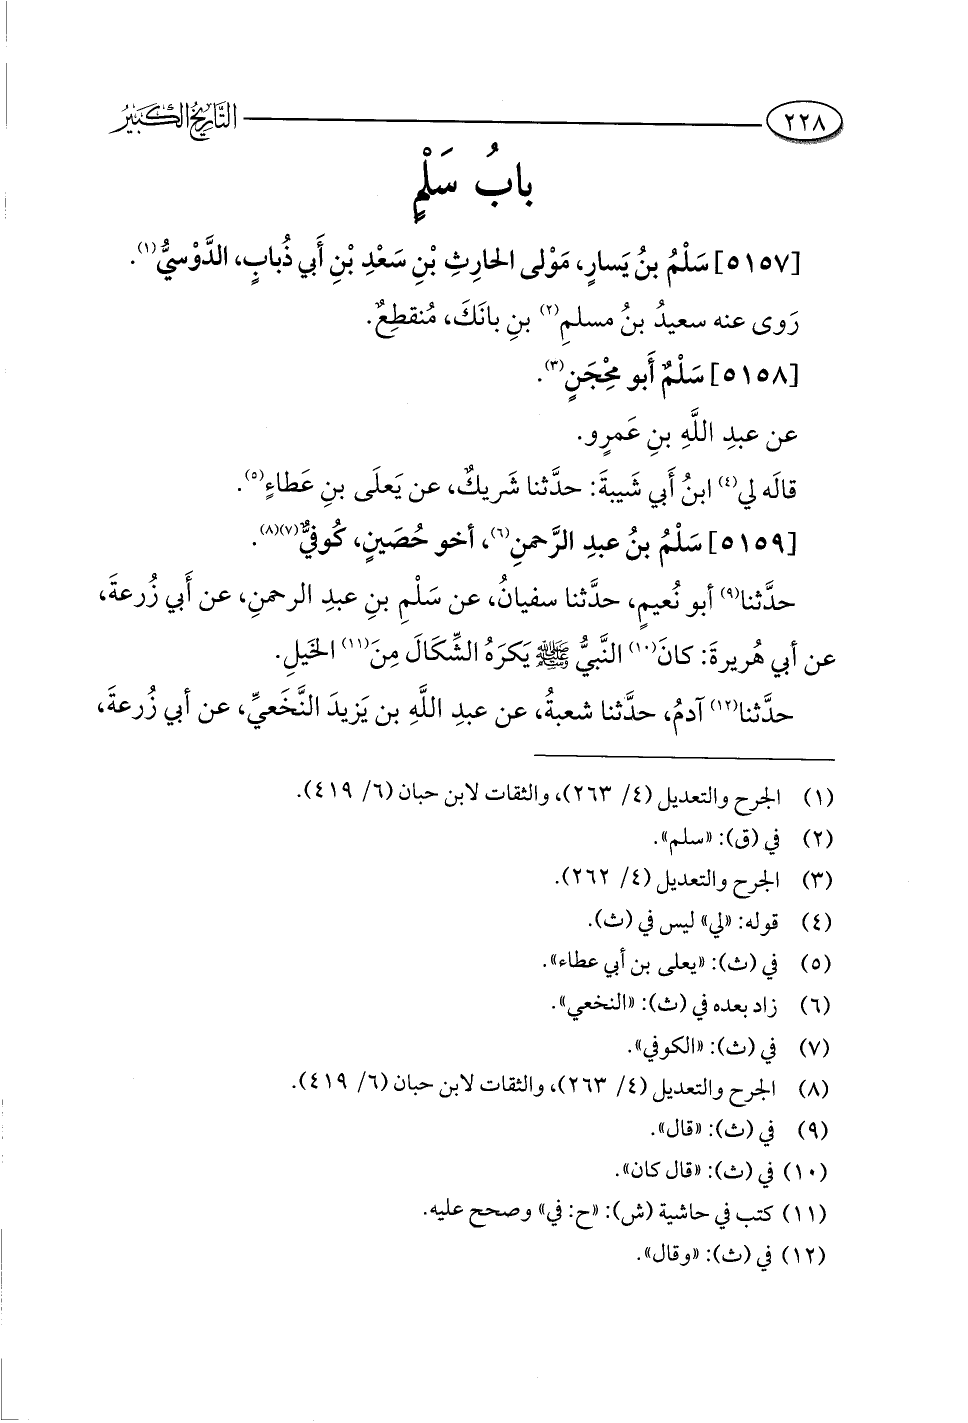 ٢٢٨ التاريخ الكبير
بابُ سَلْمٍ
[٥١٥٧] سَلْمُ بنُ يَسارٍ، مَوْلى الحارِثِ بْنِ سَعْدِ بْنِ أَبي ذُبابٍ، الدَّوْسيُّ(١).
رَوى عنه سعيدُ بنُ مسلمِ(٢) بنِ بانَكَ، مُنقطِعٌ.
[٥١٥٨] سَلْمٌ أَبو مِحْجَنٍ(٣).
عن عبدِ اللَّهِ بنِ عَمرٍو.
قالَه لي(٤) ابنُ أَبي شَيبةَ: حدَّثنا شَريكٌ، عن يَعلَى بنِ عَطاءٍ(٥).
[٥١٥٩] سَلْمُ بنُ عبدِ الرَّحمنِ(٦)، أخو حُصَينٍ، كُوفيٌّ(٧)(٨).
حدَّثنا(٩) أبو نُعيمٍ، حدَّثنا سفيانُ، عن سَلْمِ بنِ عبدِ الرحمنِ، عن أَبي زُرعةَ،
عن أبي هُريرةَ: كانَ(١٠) النَّبيُّ ﷺ يَكرَهُ الشِّكَالَ مِنَ(١١) الخَيلِ.
حدَّثنا(١٢) آدمُ، حدَّثنا شعبةُ، عن عبدِ اللَّهِ بن يَزيدَ النَّخَعيِّ، عن أَبي زُرعةَ،
(١) الجرح والتعديل (٤/ ٢٦٣)، والثقات لابن حبان (٦/ ٤١٩).
(٢) في (ق): «سلم».
(٣) الجرح والتعديل (٤/ ٢٦٢).
(٤) قوله: «لي» ليس في (ث).
(٥) في (ث): «يعلى بن أبي عطاء».
(٦) زاد بعده في (ث): «النخعي».
(٧) في (ث): «الكوفي».
(٨) الجرح والتعديل (٤/ ٢٦٣)، والثقات لابن حبان (٦/ ٤١٩).
(٩) في (ث): «قال».
(١٠) في (ث): «قال كان».
(١١) كتب في حاشية (ش): «ح: في» وصحح عليه.
(١٢) في (ث): «وقال».